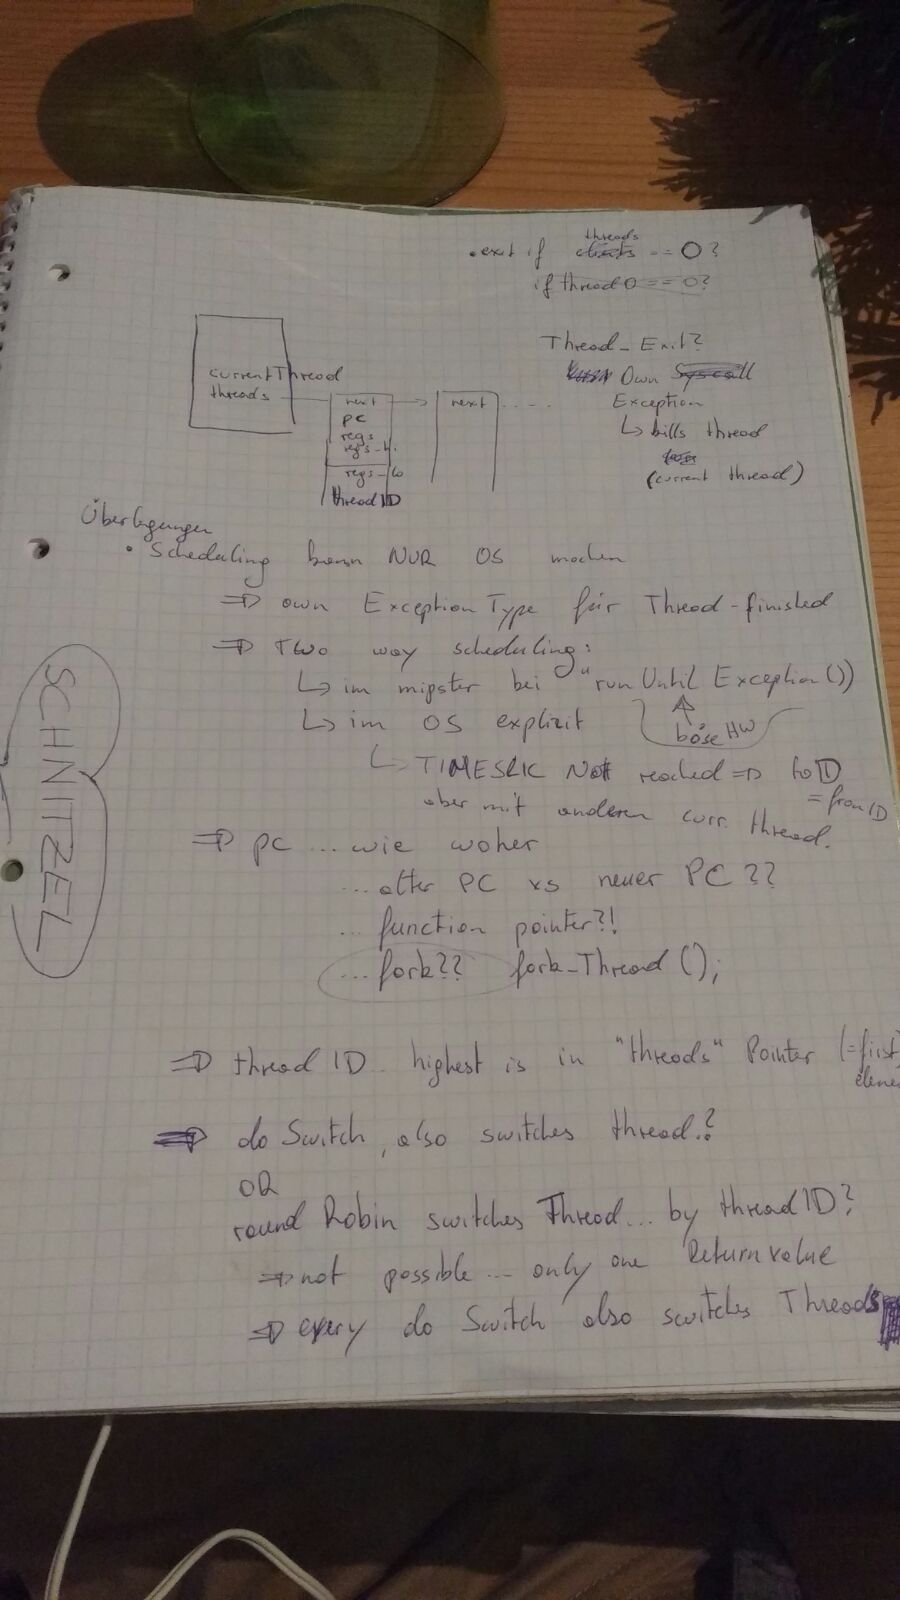 threads
• exit if == 0?
if thread0 == 0?
Thread_Exit?
Own Syscall
Exception
↳ kills thread
(current thread)
currentThread
threads
next
pc
regs
regs-hi
regs-lo
threadID
next ....
Überlegungen
• Scheduling kann NUR OS machen
⇒ own Exception Type für Thread-finished
⇒ Two way scheduling:
↳ im mipster bei "runUntilException())
↳ im OS explizit
böse HW
↳ TIMESLIC Not reached ⇒ toID
= fromID
aber mit anderen curr. thread.
⇒ pc ... wie woher
... alter PC vs neuer PC??
... function pointer?!
... fork?? fork_Thread();
⇒ thread ID.. highest is in "threads" Pointer (=first
⇒ do Switch, also switches thread?
OR
round Robin switches Thread... by threadID?
⇒ not possible ... only one Returnvalue
⇒ every do Switch also switches Threads
SCHNITZEL